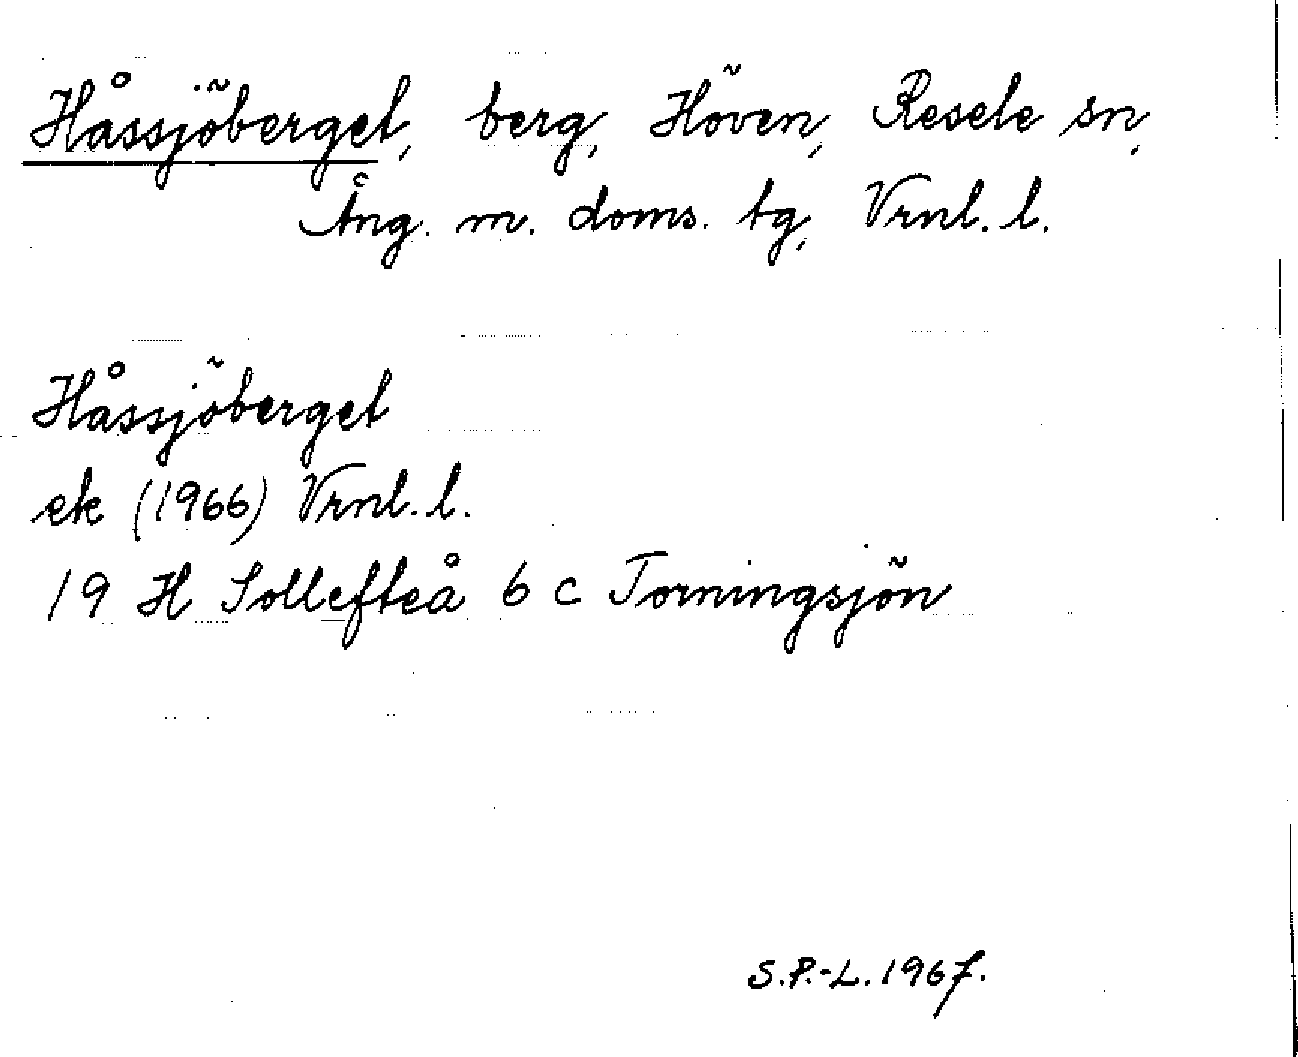 Håssjöberget, berg, Höven, Resele sn,
Ång. m. doms. tg, Vrnl. l.
Håssjöberget
ek (1966) Vrnl. l.
19 H Sollefteå 6 c Torningsjön
S.P.-L. 1967.